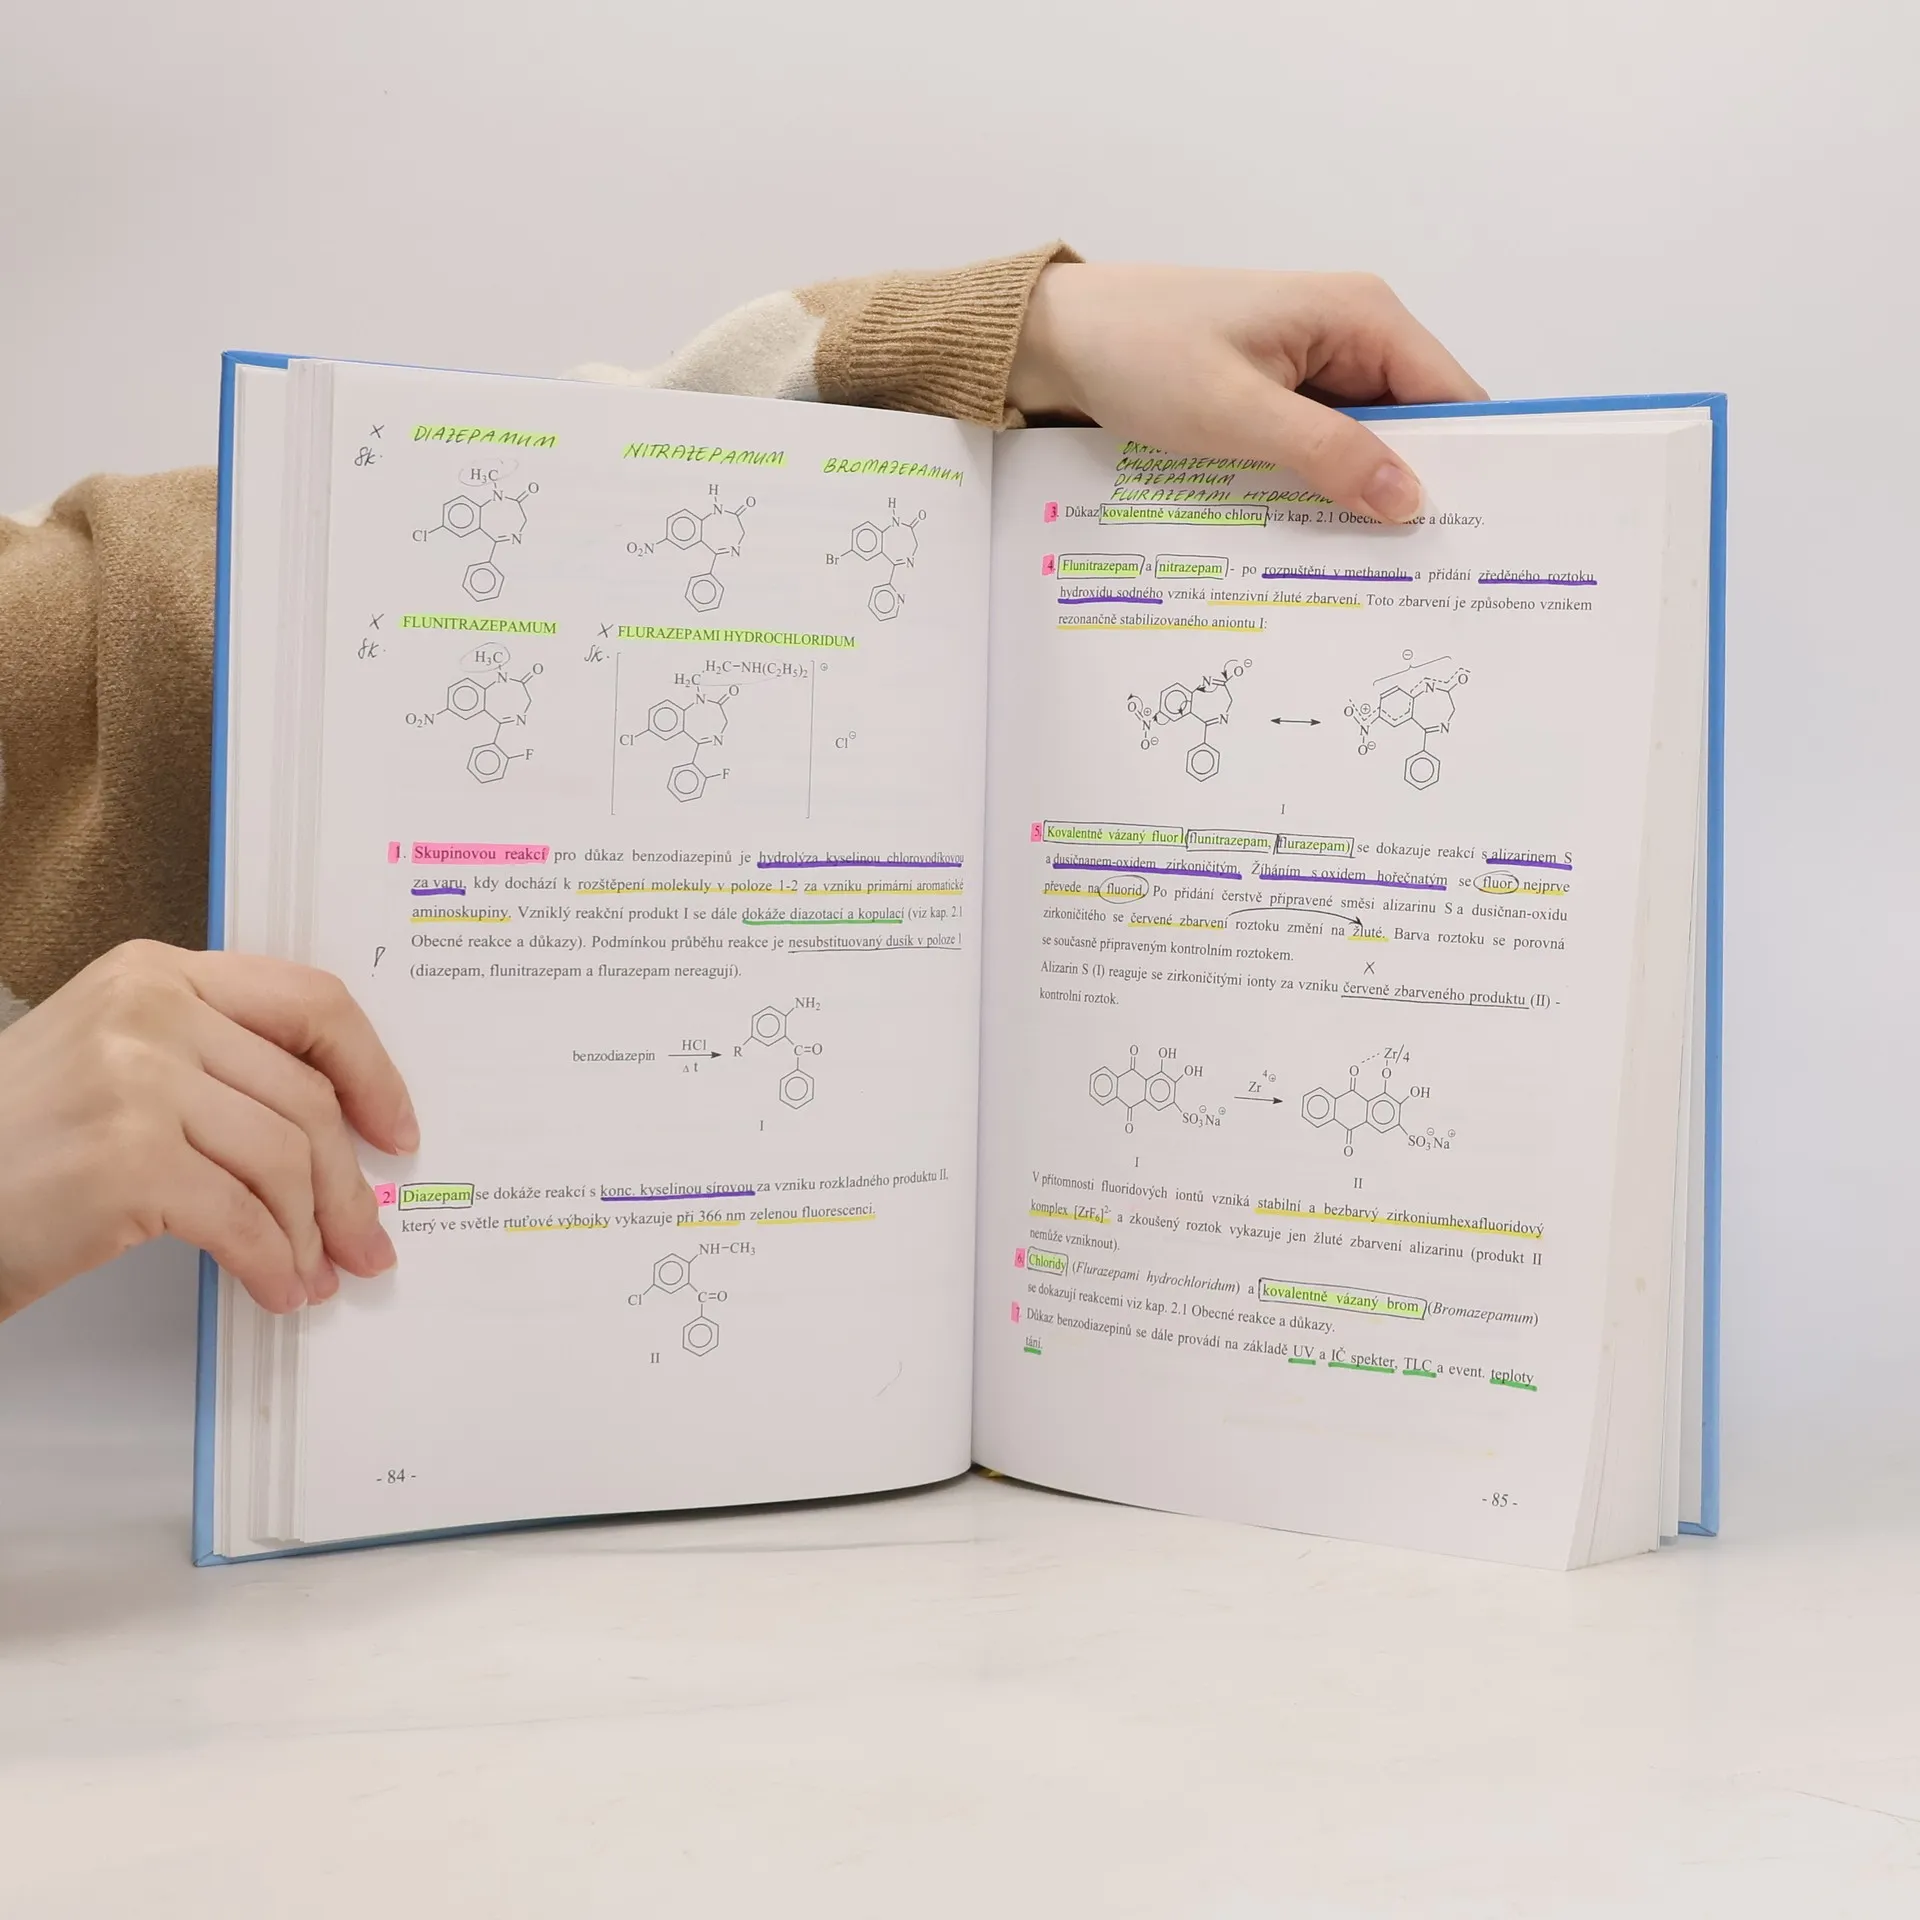 X
DIAZEPAMUM
NITRAZEPAMUM
BROMAZEPAMUM
sk.
H₃C
N
O
Cl
N
H
N
O
O₂N
N
H
N
O
Br
N
N
X
FLUNITRAZEPAMUM
X FLURAZEPAMI HYDROCHLORIDUM
sk.
sk.
H₃C
N
O
O₂N
N
F
H₂C–NH(C₂H₅)₂
⊕
H₂C
N
O
Cl
N
F
Cl⊖
1. Skupinovou reakcí pro důkaz benzodiazepinů je hydrolýza kyselinou chlorovodíkovou
za varu, kdy dochází k rozštěpení molekuly v poloze 1-2 za vzniku primární aromatické
aminoskupiny. Vzniklý reakční produkt I se dále dokáže diazotací a kopulací (viz kap. 2.1
Obecné reakce a důkazy). Podmínkou průběhu reakce je nesubstituovaný dusík v poloze 1
(diazepam, flunitrazepam a flurazepam nereagují).
NH₂
benzodiazepin
HCl
Δ t
R
C=O
I
2. Diazepam se dokáže reakcí s konc. kyselinou sírovou za vzniku rozkladného produktu II.
který ve světle rtuťové výbojky vykazuje při 366 nm zelenou fluorescenci.
NH–CH₃
Cl
C=O
II
- 84 -
CHLORDIAZEPOXIDUM
DIAZEPAMUM
FLURAZEPAMI
3. Důkaz kovalentně vázaného chloru viz kap. 2.1 a důkazy.
4. Flunitrazepam a nitrazepam - po rozpuštění v methanolu a přidání zředěného roztoku
hydroxidu sodného vzniká intenzivní žluté zbarvení. Toto zbarvení je způsobeno vznikem
rezonančně stabilizovaného aniontu I:
N
O⊖
O
⊕
N
O⊖
N
⊖
N
O
O
⊕
N
O⊖
N
I
5. Kovalentně vázaný fluor (flunitrazepam, flurazepam) se dokazuje reakcí s alizarinem S
a dusičnanem-oxidem zirkoničitým. Žíháním s oxidem hořečnatým se fluor nejprve
převede na fluorid. Po přidání čerstvě připravené směsi alizarinu S a dusičnan-oxidu
zirkoničitého se červené zbarvení roztoku změní na žluté. Barva roztoku se porovná
se současně připraveným kontrolním roztokem.
X
Alizarin S (I) reaguje se zirkoničitými ionty za vzniku červeně zbarveného produktu (II) -
kontrolní roztok.
O OH
OH
SO₃⊖Na⊕
O
I
Zr4⊕
Zr/4
O O
OH
SO₃⊖Na⊕
O
II
V přítomnosti fluoridových iontů vzniká stabilní a bezbarvý zirkoniumhexafluoridový
komplex [ZrF₆]²⁻ a zkoušený roztok vykazuje jen žluté zbarvení alizarinu (produkt II
nemůže vzniknout).
6. Chloridy (Flurazepami hydrochloridum) a kovalentně vázaný brom (Bromazepamum)
se dokazují reakcemi viz kap. 2.1 Obecné reakce a důkazy.
7. Důkaz benzodiazepinů se dále provádí na základě UV a IČ spekter, TLC a event. teploty
tání.
- 85 -